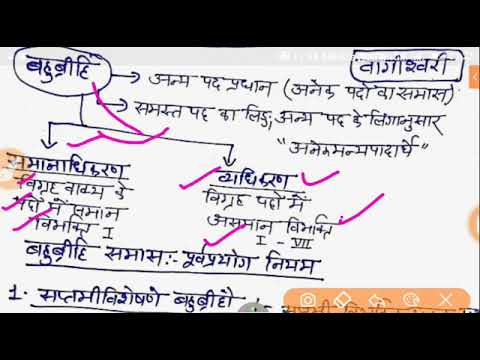 बहुब्रीहि
वागीश्वरी
→ अन्य पद प्रधान (अनेक पदो वा समास)
→ समस्त पद का लिङ्ग, अन्य पद के लिंगानुसार
"अनेकमन्यपदार्थे"
समानाधिकरण
विग्रह वाक्य के
पदों में समान
विभक्ति I
व्याधिकरण
विग्रह पदों में
असमान विभक्ति
I - VII
बहुब्रीहि समास :- पूर्वप्रयोग नियम
1. सप्तमीविशेषणे बहुब्रीहौ